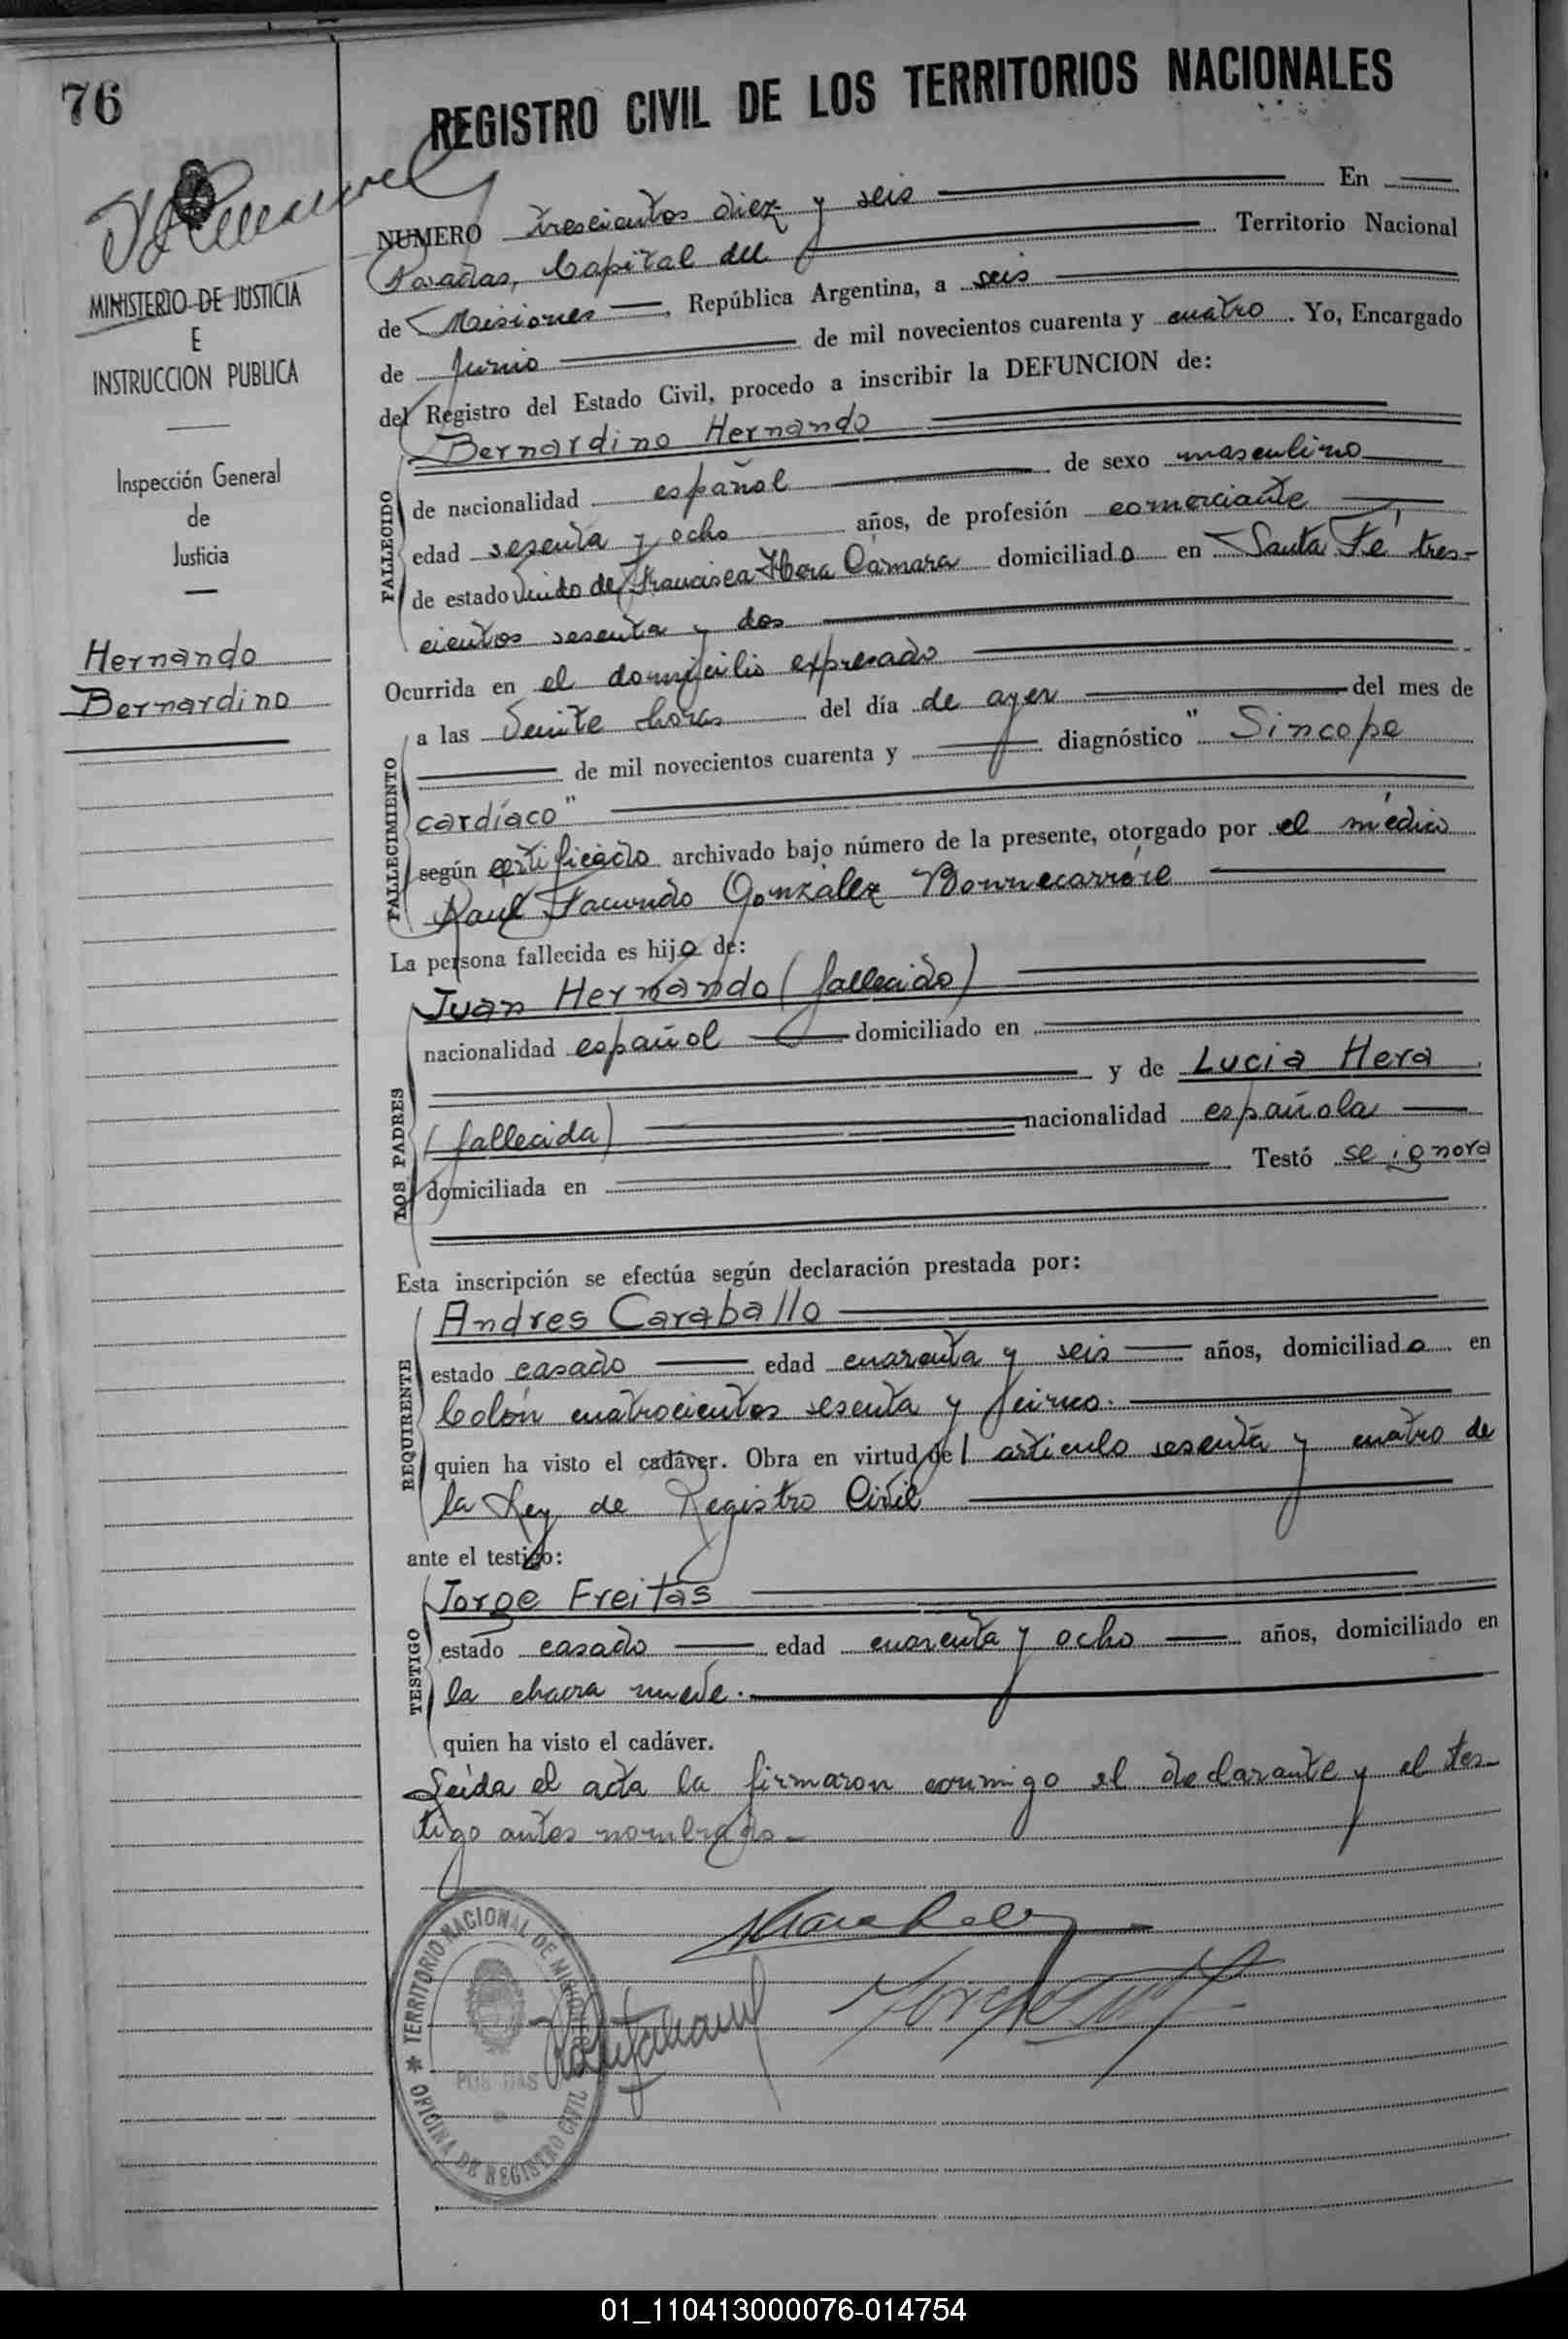 76
REGISTRO CIVIL DE LOS TERRITORIOS NACIONALES
MINISTERIO DE JUSTICIA
E
INSTRUCCION PUBLICA
Inspección General
de
Justicia
Hernando
Bernardino
NUMERO trescientos diez y seis En
Posadas, Capital del Territorio Nacional
de Misiones, República Argentina, a seis
de Junio de mil novecientos cuarenta y cuatro. Yo, Encargado
del Registro del Estado Civil, procedo a inscribir la DEFUNCION de:
FALLECIDO
Bernardino Hernando
de nacionalidad español de sexo masculino
edad sesenta y ocho años, de profesión comerciante
de estado viudo de Francisca Hera Cámara domiciliado en Santa Fé tres-
cientos sesenta y dos
Ocurrida en el domicilio expresado
FALLECIMIENTO
a las veinte horas del día de ayer del mes de
de mil novecientos cuarenta y diagnóstico "Sincope
cardíaco"
según certificado archivado bajo número de la presente, otorgado por el médico
Raul Facundo González Bonnecarrére
La persona fallecida es hijo de:
LOS PADRES
Juan Hernando (fallecido)
nacionalidad español domiciliado en
y de Lucia Hera
(fallecida) nacionalidad española
domiciliada en Testó se ignora
Esta inscripción se efectúa según declaración prestada por:
REQUIRENTE
Andres Caraballo
estado casado edad cuarenta y seis años, domiciliado en
Colón cuatrocientos sesenta y cinco.
quien ha visto el cadáver. Obra en virtud del artículo sesenta y cuatro de
la Ley de Registro Civil
ante el testigo:
TESTIGO
Jorge Freitas
estado casado edad cuarenta y ocho años, domiciliado en
la chacra nueve.
quien ha visto el cadáver.
Leída el acta la firmaron conmigo el declarante y el tes-
tigo antes nombrado.-
TERRITORIO NACIONAL DE MISIONES
POSADAS
OFICINA DE REGISTRO CIVIL
01_110413000076-014754